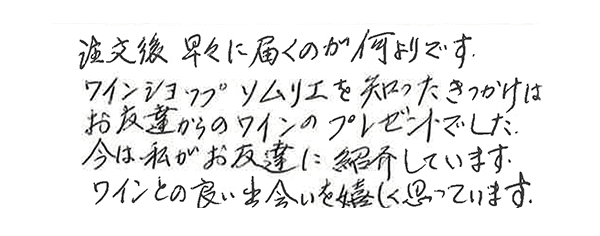 注文後 早々に届くのが何よりです.
ワインショップ ソムリエを知ったきっかけは
お友達からのワインのプレゼントでした.
今は私がお友達に紹介しています.
ワインとの良い出会いを嬉しく思っています.